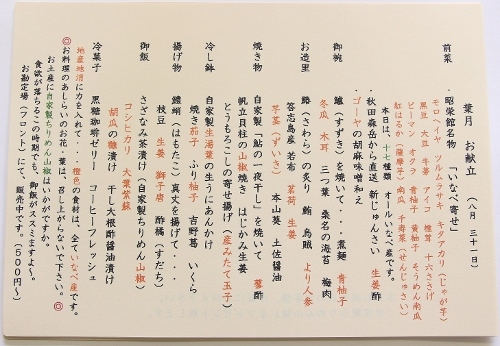 葉月 お献立 (八月 三十一日)
前菜 昭栄館名物 「いなべ寄せ」
モロヘイヤ ツルムラサキ キタアカリ(じゃが芋)
黒豆 大豆 牛蒡 アイコ 椎茸 十六ささげ
ピーマン オクラ 青柚子 黄柚子 そうめん南瓜
紅はるか(薩摩芋) 南瓜 千寿菜(せんじゅさい)
本日は、十七種類 オールいなべ産です。
・秋田森岳から直送 新じゅんさい 生姜酢
・ゴーヤの胡麻味噌和え
御椀 鱸(すずき)を焼いて・・ 煮麺 青柚子
冬瓜 木耳 三つ葉 桑名の海苔 梅肉
お造里 鰆(さわら)の炙り 鮪 烏賊 より人参
答志島産 若布 茗荷 生姜
芋茎(ずいき) 本山葵 土佐醤油
焼き物 自家製「鮎の一夜干し」を焼いて 蓼酢
帆立貝柱の山椒焼き はじかみ生姜
とうもろこしの寄せ揚げ(産みたて玉子)
冷し鉢 自家製生湯葉の生うにあんかけ
焼き茄子 ふり柚子 吉野葛 いくら
揚げ物 鱧蛸(はもたこ)真丈を揚げて・・・
枝豆 生姜 獅子唐 酢橘(すだち)
御飯 さざなみ茶漬け(自家製ちりめん山椒)
コシヒカリ 大葉紫蘇
胡瓜の糠漬け 干し大根酢醤油漬け
冷菓子 黒糖珈琲ゼリー コーヒーフレッシュ
地産地消に力を入れて・・・橙色の食材は、全ていなべ産です。
◎お料理のあしらいのお花・葉は、召し上がらないで下さい。◎
お土産に自家製ちりめん山椒はいかがですか。
食欲が落ちるこの時期でも、御飯がススミますよ〜。
お勘定場(フロント)にて、販売中です。(500円〜)